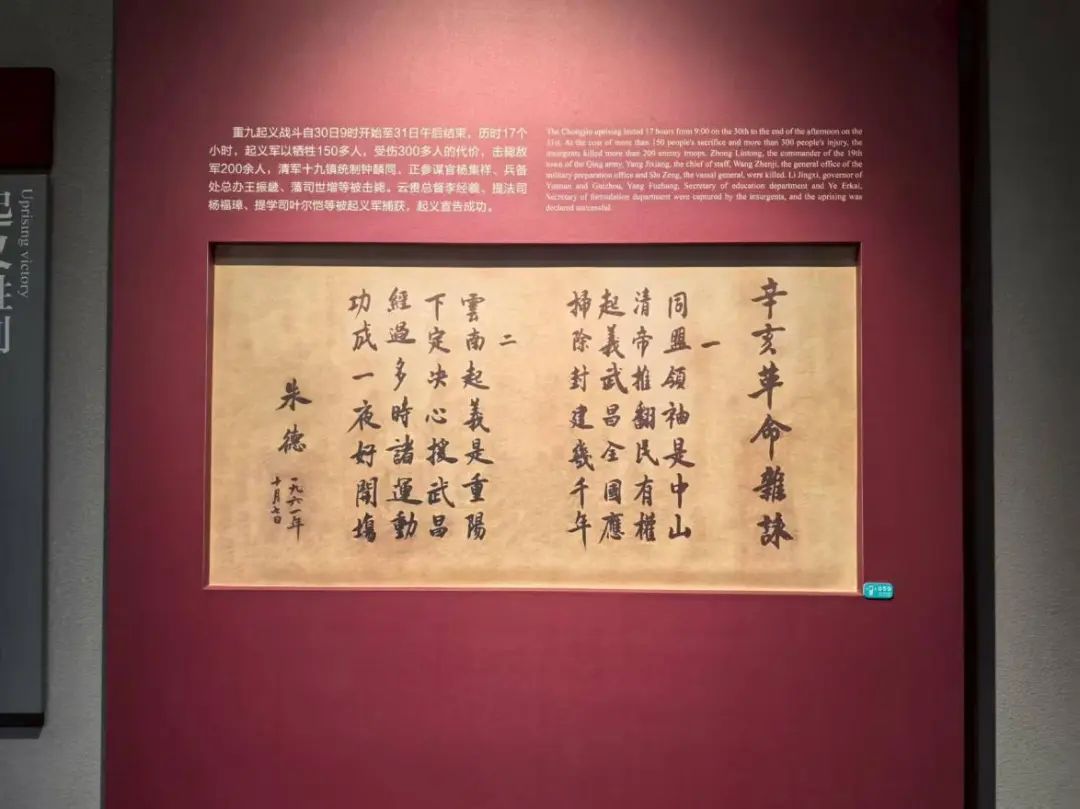 重九起义战斗自30日9时开始至31日午后结束，历时17个
小时，起义军以牺牲150多人，受伤300多人的代价，击毙敌
军200余人，清军十九镇统制钟麟同、正参谋官杨集祥、兵备
处总办王振畿、藩司世增等被击毙。云贵总督李经羲、提法司
杨福璋、提学司叶尔恺等被起义军捕获，起义宣告成功。
The Chongjiu uprising lasted 17 hours from 9:00 on the 30th to the end of the afternoon on the
31st. At the cost of more than 150 people's sacrifice and more than 300 people's injury, the
insurgents killed more than 200 enemy troops. Zhong Lintong, the commander of the 19th
town of the Qing army, Yang Jixiang, the chief of staff, Wang Zhenji, the general office of the
military preparation office and Shi Zeng, the vassal general, were killed. Li Jingxi, governor of
Yunnan and Guizhou, Yang Fuzhang, Secretary of education department and Ye Erkai,
Secretary of formulation department were captured by the insurgents, and the uprising was
declared successful.
辛亥革命雜詠
一
同盟領袖是中山
清帝推翻民有權
起義武昌全國應
掃除封建幾千年
二
雲南起義是重陽
下定決心援武昌
經過多時諸運動
功成一夜好開場
朱德
一九六一年
十月七日
Uprising victory
059